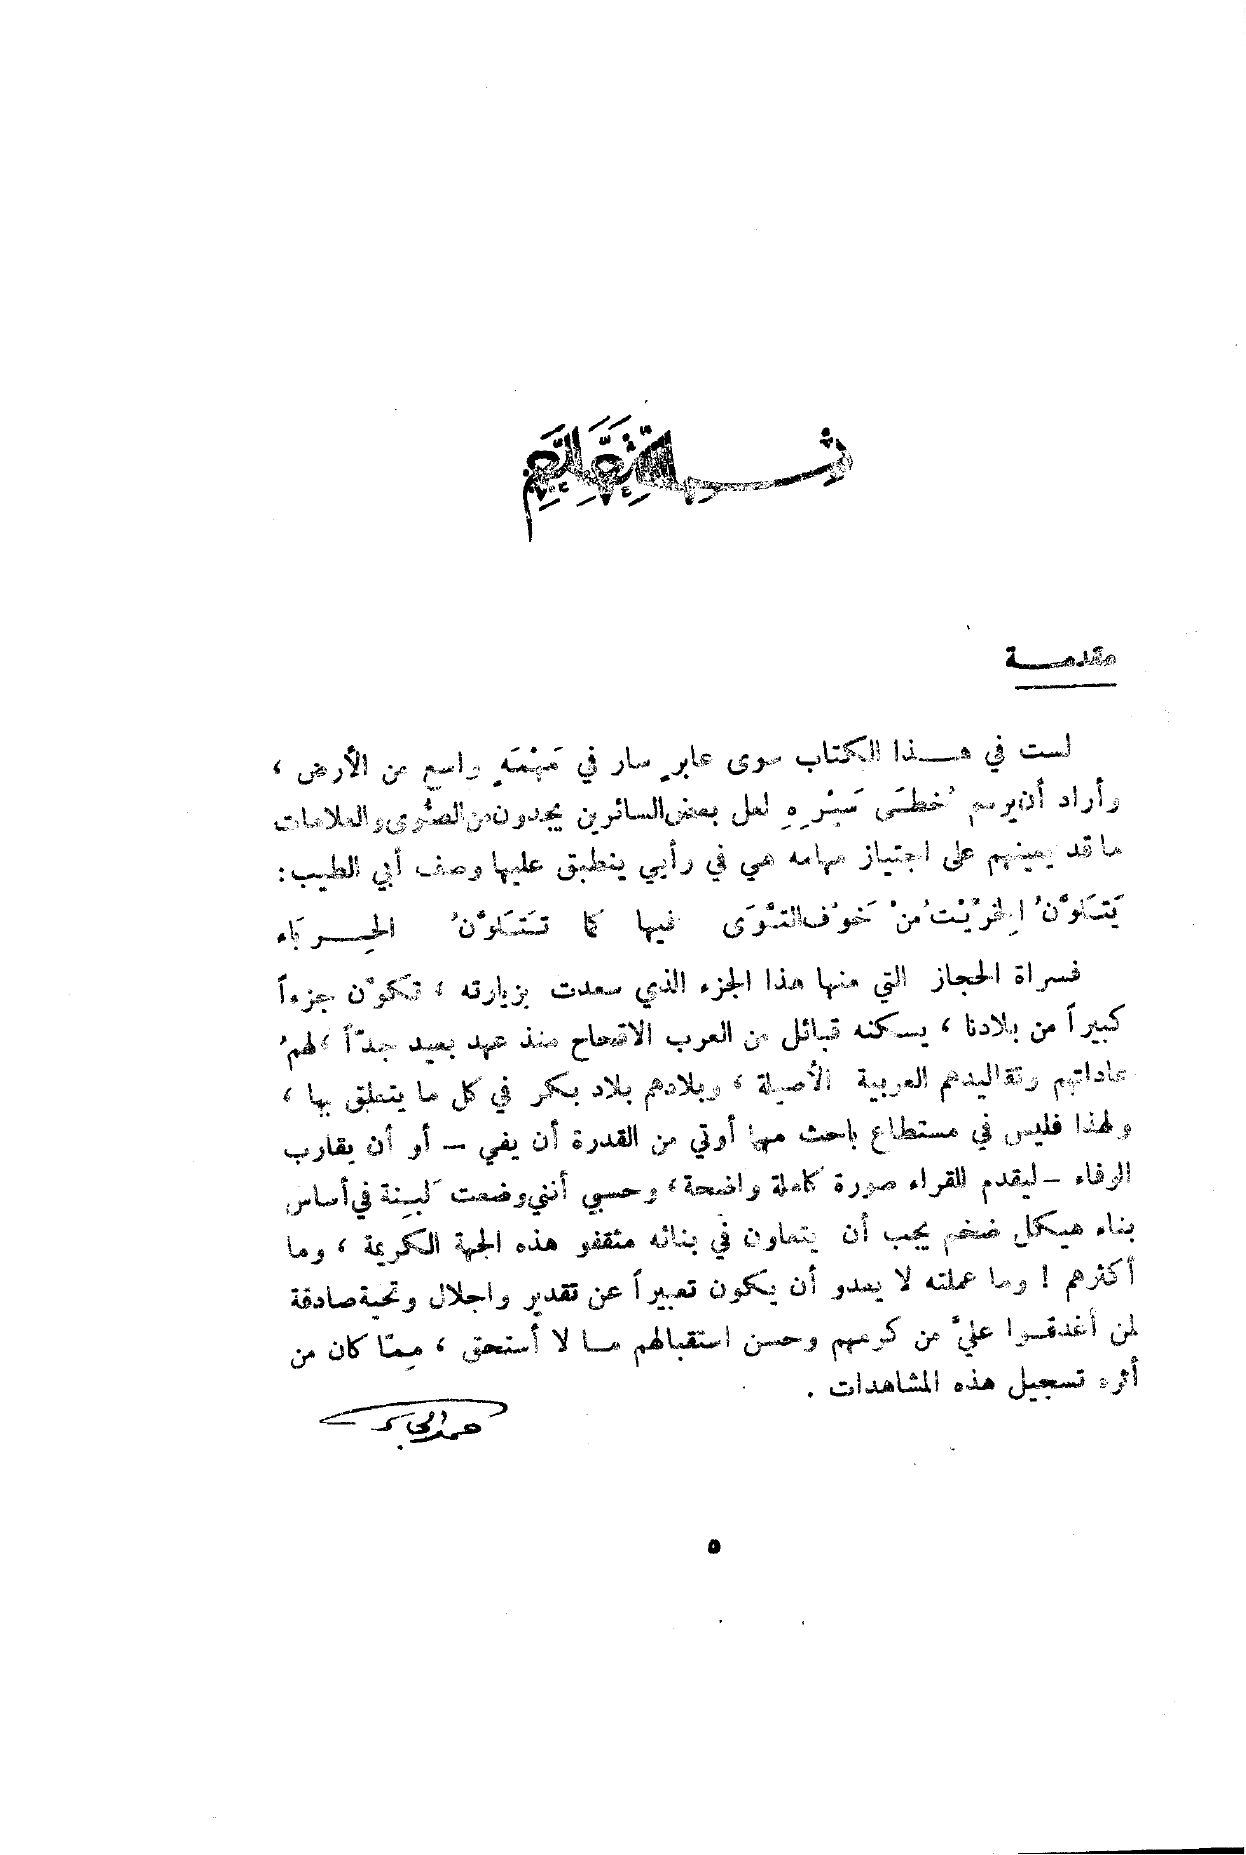 بسم الله الرحمن الرحيم
مقدمة
لست في هذا الكتاب سوى عابرٍ سار في مَهْمَهٍ واسع من الأرض ،
وأراد أن يرسم خُطَى سَيْرِهِ لعل بعض السائرين يجدون من الصُّوى والعلامات
ما قد يعينهم على اجتياز مهامه هي في رأيي ينطبق عليها وصف أبي الطيب :
يَتَلَوَّنُ الخِرِّيْتُ مِنْ خَوْفِ التَّوَى فيها كما تَتَلَوَّنُ الحِرباء
فسراة الحجاز التي منها هذا الجزء الذي سعدت بزيارته ، تكوّن جزءاً
كبيراً من بلادنا ، يسكنه قبائل من العرب الاقحاح منذ عهد بعيد جدّاً ، لهمُ
عاداتهم وتقاليدهم العربية الأصيلة ، وبلادهم بلاد بكر في كل ما يتعلق بها ،
ولهذا فليس في مستطاع باحث مهما أوتي من القدرة أن يفي – أو أن يقارب
الوفاء – ليقدم للقراء صورة كاملة واضحة ، وحسبي أنني وضعت لَبِنة في أساس
بناء هيكل ضخم يجب أن يتعاون في بنائه مثقفو هذه الجهة الكريمة ، وما
أكثرهم ! وما عملته لا يعدو أن يكون تعبيراً عن تقدير واجلال وتحية صادقة
لمن أغدقوا عليّ من كرمهم وحسن استقبالهم ما لا أستحق ، مِمّا كان من
أثره تسجيل هذه المشاهدات .
حمد الجاسر
٥